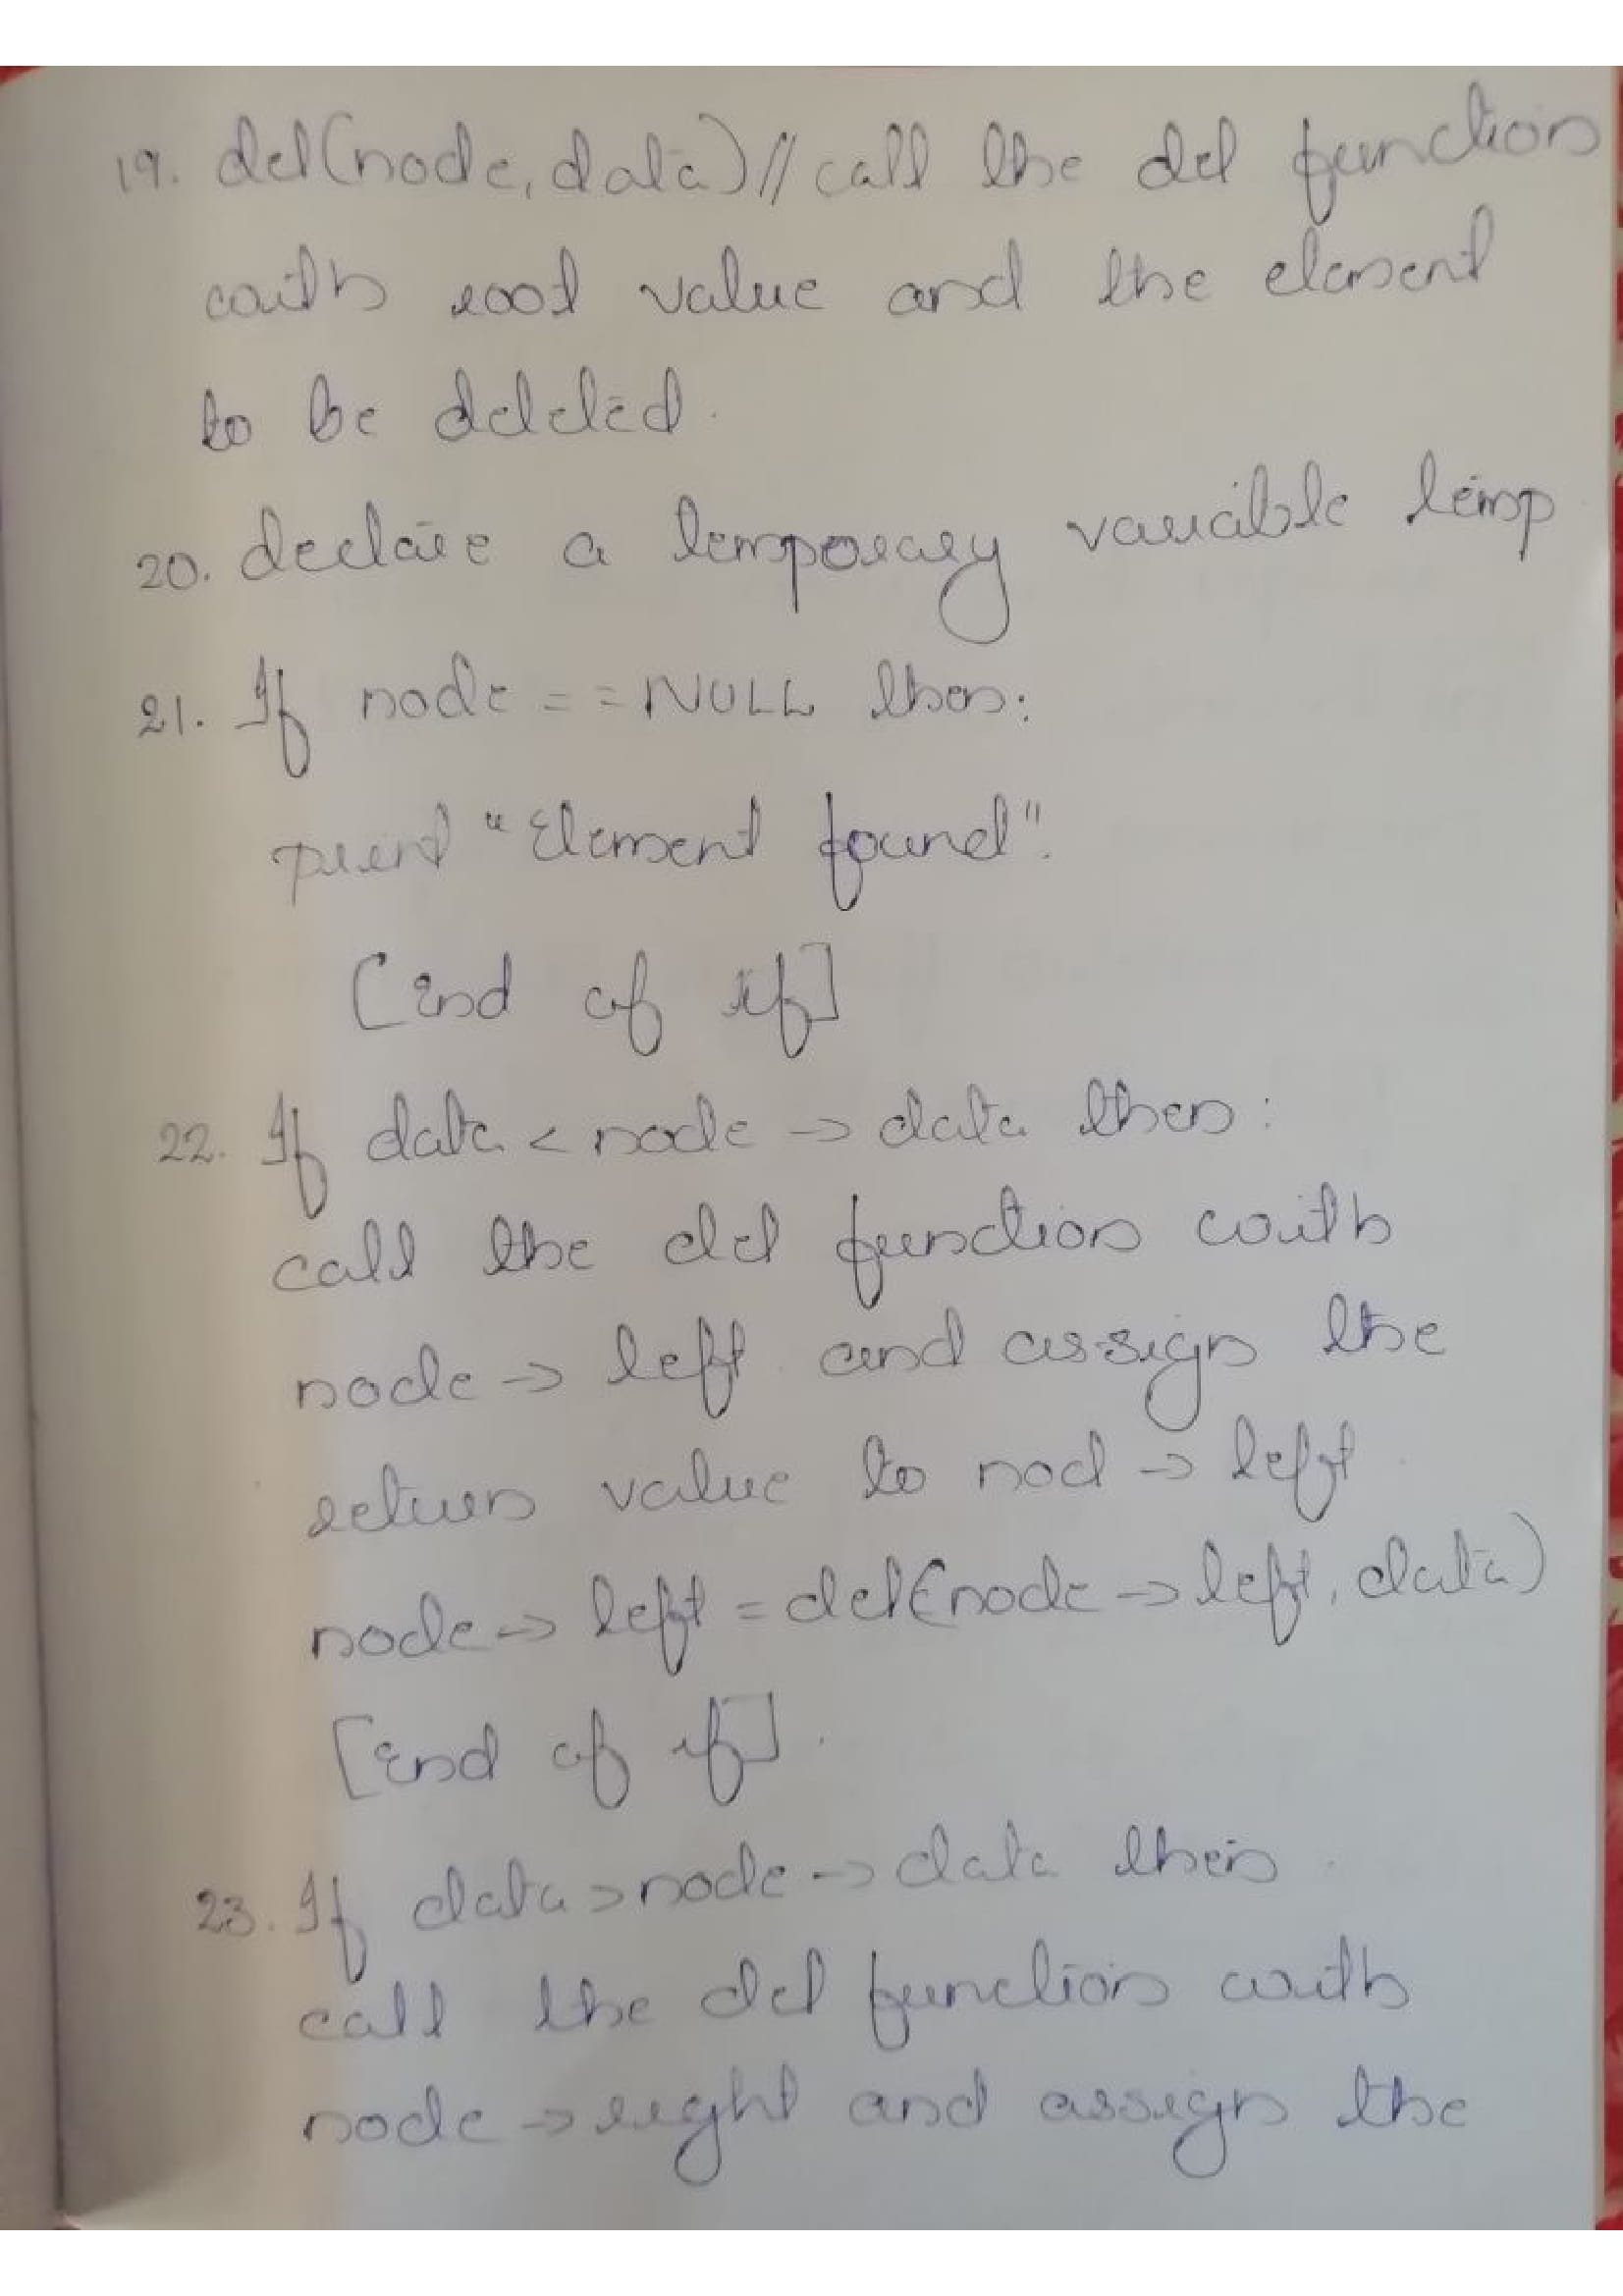 19. del(node, data) // call the del function
with root value and the element
to be deleted.
20. declare a temporary variable temp
21. If node == NULL then:
print "Element found".
[End of if]
22. If data < node -> data then:
call the del function with
node -> left and assign the
return value to nod -> left
node -> left = del(node -> left, data)
[End of if].
23. If data > node -> data then
call the del function with
node -> right and assign the